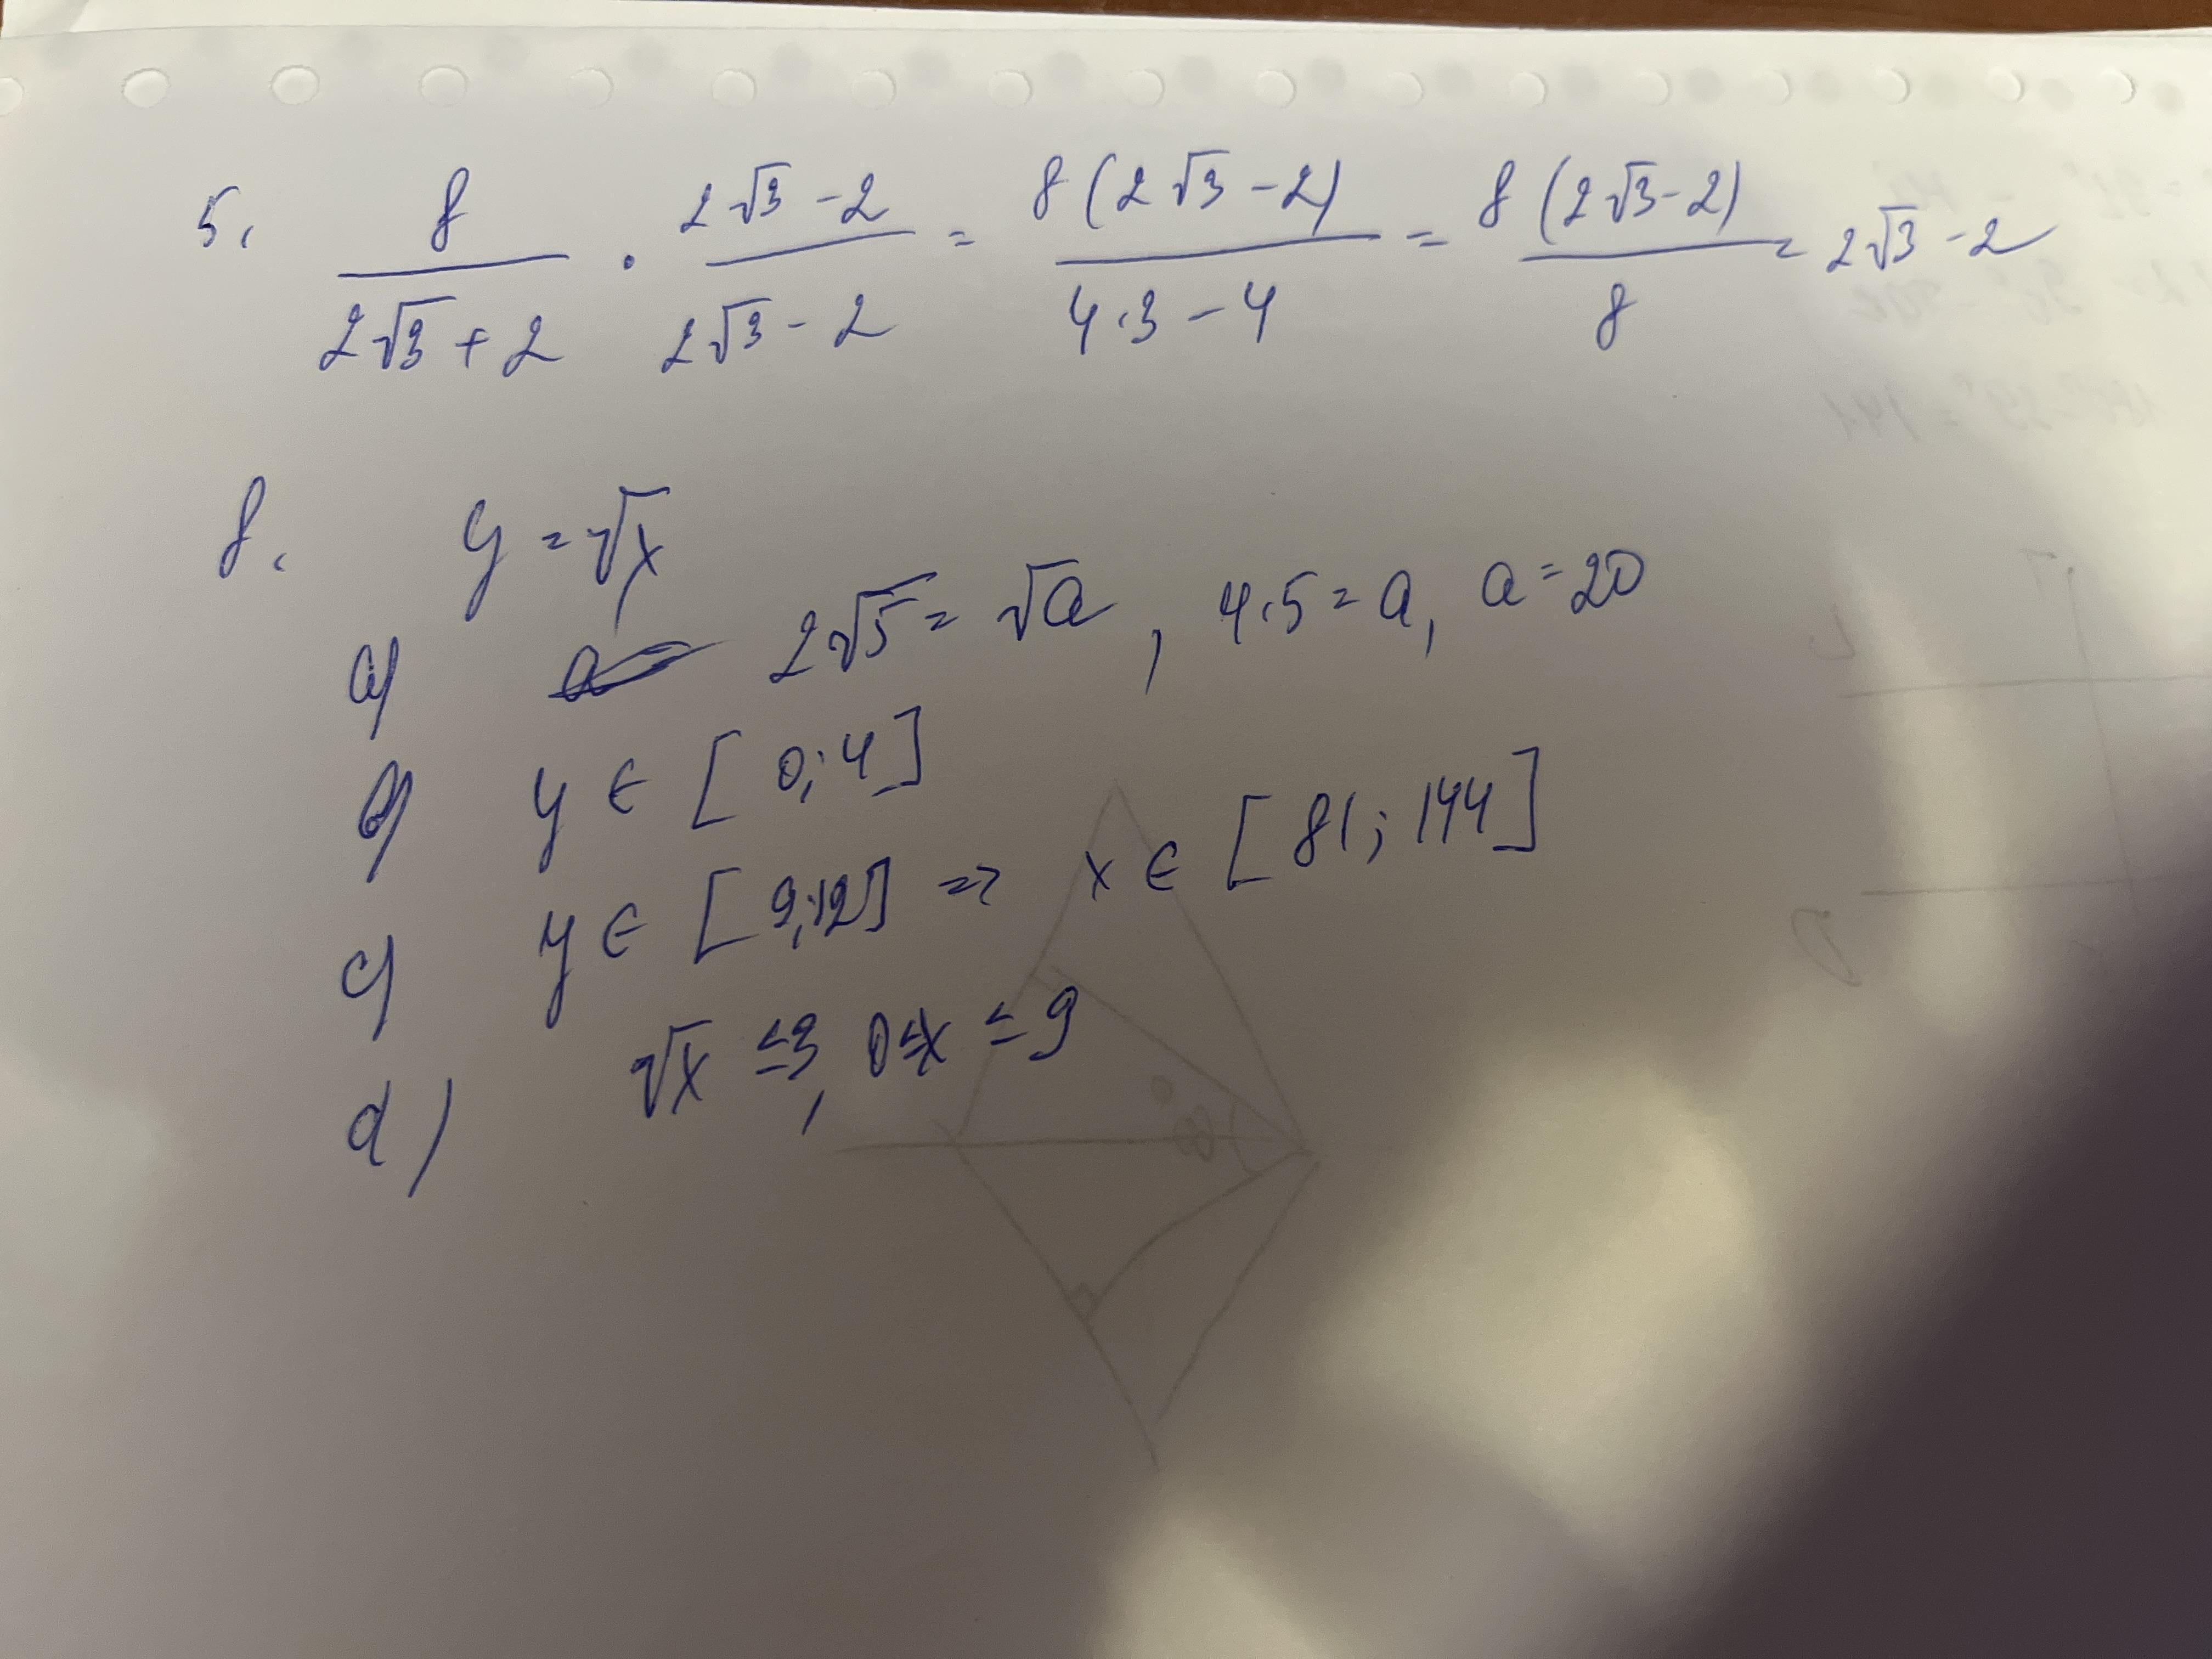 5. 8/(2√3 + 2) · (2√3 - 2)/(2√3 - 2) = 8(2√3 - 2)/(4·3 - 4) = 8(2√3 - 2)/8 = 2√3 - 2
8. y = √x
a) 2√5 = √a, 4·5 = a, a = 20
b) y ∈ [0; 4]
c) y ∈ [9; 12] => x ∈ [81; 144]
d) √x ≤ 3, 0 ≤ x ≤ 9